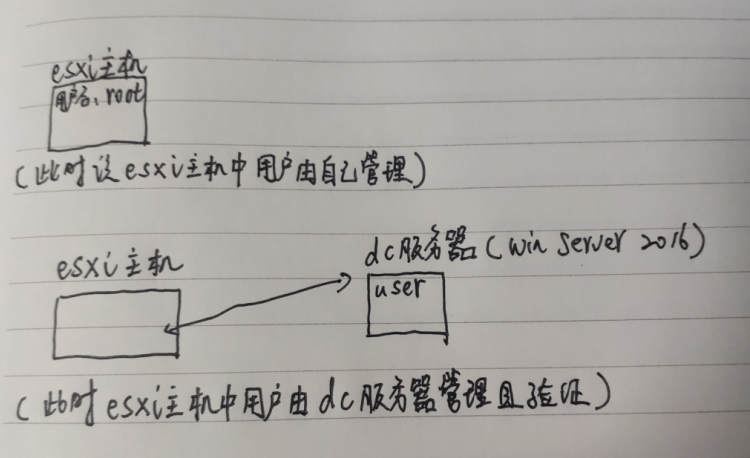 esxi主机
用户名：root
(此时该esxi主机中用户由自己管理)
dc服务器(win server 2016)
esxi主机
user
(此时esxi主机中用户由dc服务器管理且验证)